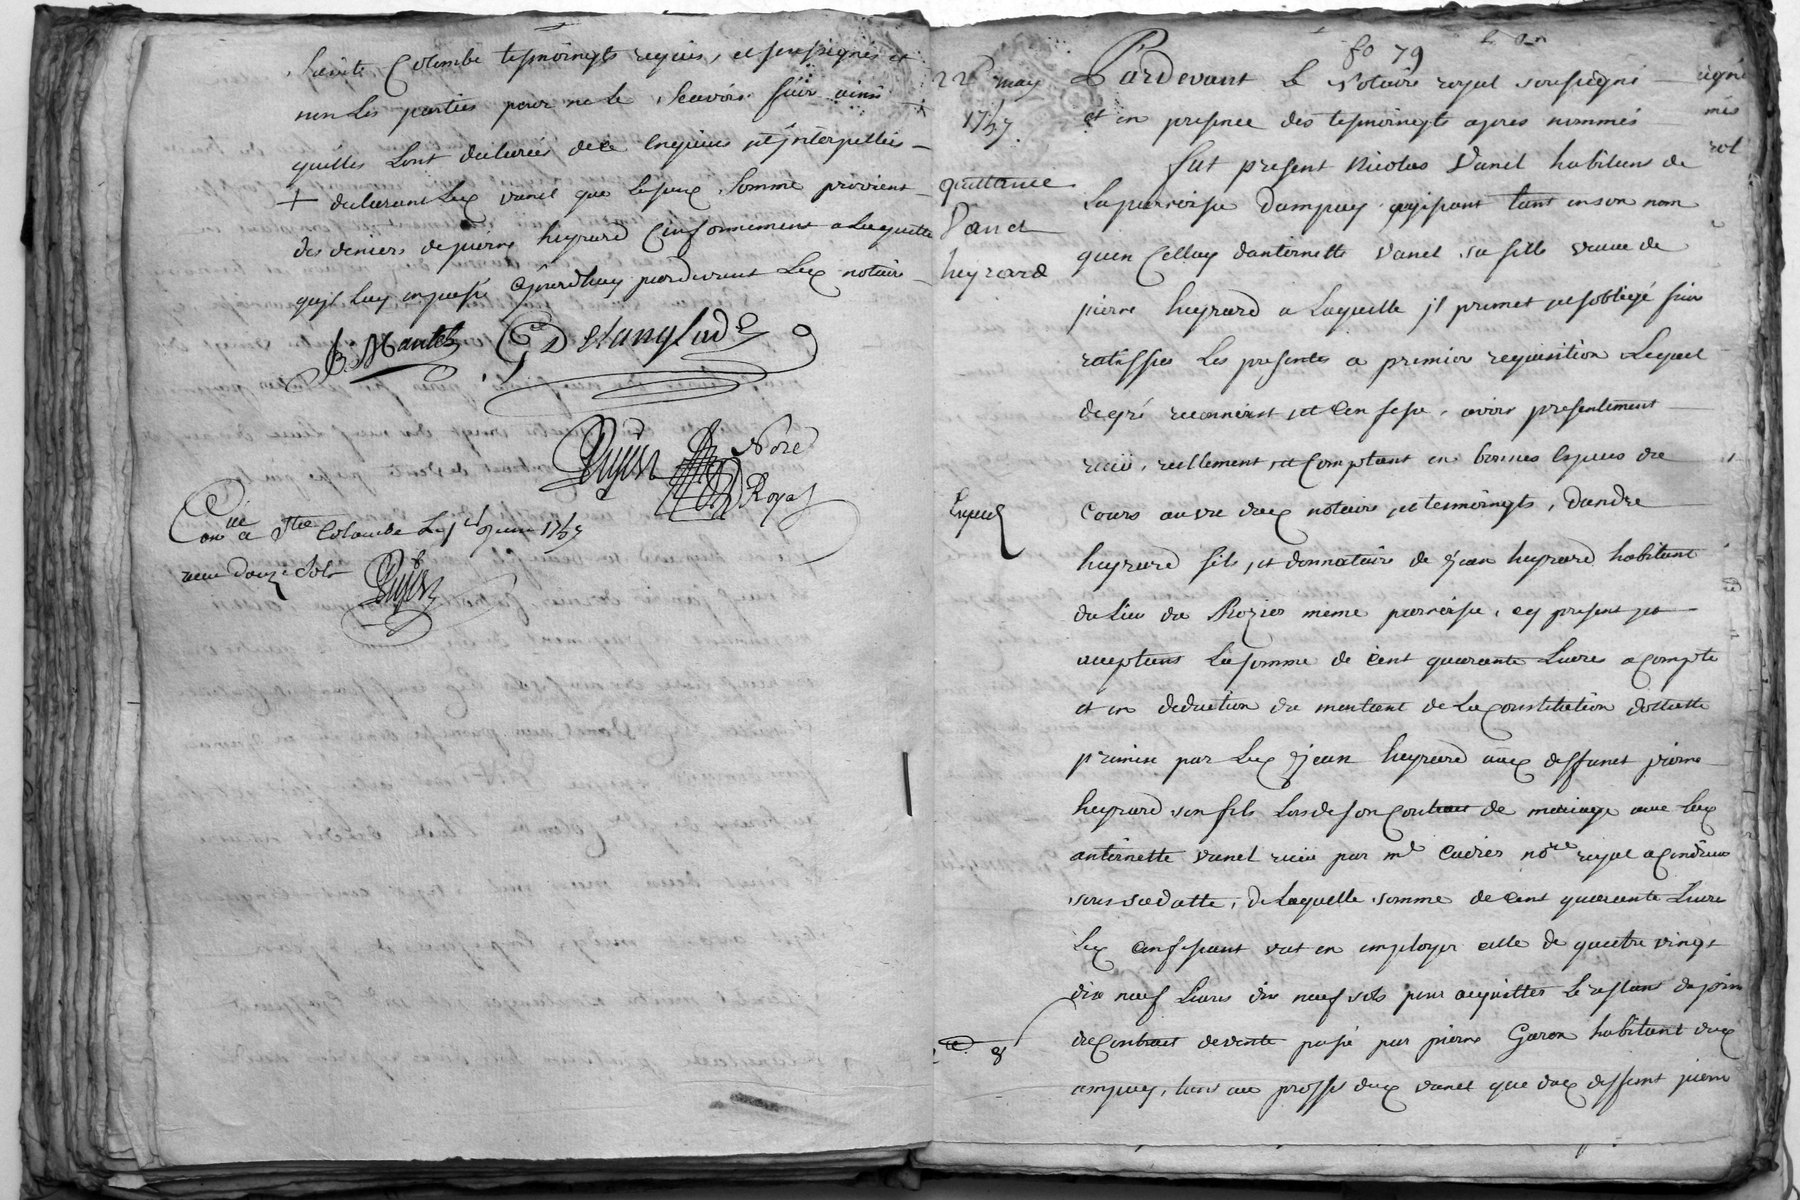 Sainte Colombe tesmoingts requis, et soussignés et
non les parties pour ne le scavoir faire ainsi
quilles lont declarées de ce enquises et interpellées
+ declarant led vanel que lad somme provient
des deniers de pierre heyrard conformement a la quitte
quil luy en passé ejourdhuy pardevant led notaire
B Mantel G Deslanglade
Nore
Royal
Con^{lle} a Ste Colombe Le 1^r juin 1757
receu douze sols
fo 79
22^e may
1757
quittance
Vanel
heyrard
Pardevant Le Notaire royal soussigné
et en presence des tesmoingts apres nommés
fut present Nicolas Vanel habitant de
la parroisse dampuy agissant tant en son nom
quen celluy dantoinette Vanel sa fille veuve de
pierre heyrard a laquelle il promet et soblige faire
ratiffier les presentes a premiere requisition Lequel
de gré reconnoist et confesse avoir presentement
receu, reellement et comptant en bonnes especes de
Cours au veu deux notaire et tesmoingts, dandré
heyrard fils, et donnataire de jean heyrard habitant
du lieu du Rozier meme parroisse, cy present et
acceptant La somme de cent quarante Livres a compte
et en deduction du montant de La constitution dottalle
promise par led jean heyrard aud deffunct pierre
heyrard son fils lors de son contrait de mariage avec lad
antoinette vanel receu par m^e cuirer no^{re} royal a Condrieu
sous sa datte, de laquelle somme de cent quarante Livres
Led confessant vat en employer celle de quatre vingt
dix neuf Livres dix neuf sols pour acquitter le restant du prix
du contrait de vente passé par pierre Garon habitant dud
ampuy, tant au proffit dud vanel que dud deffunt pierre